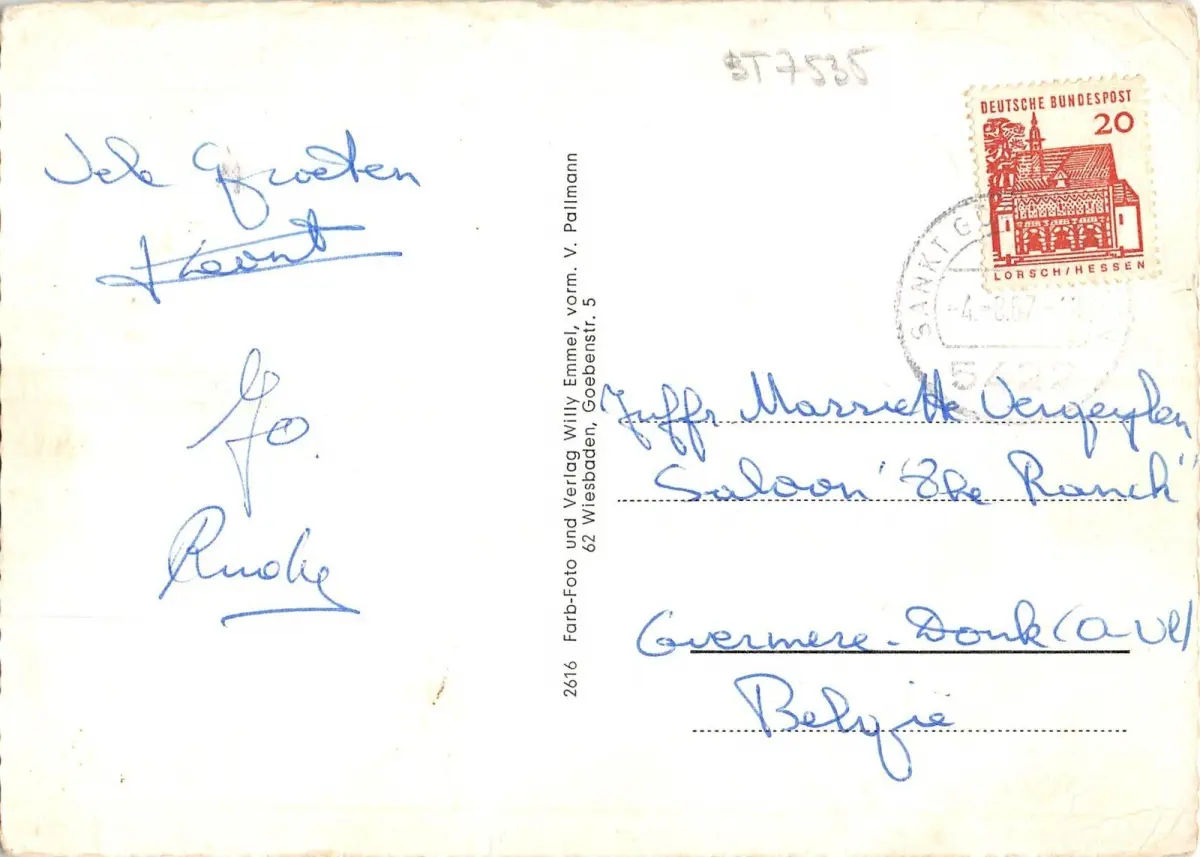 ST7535
DEUTSCHE BUNDESPOST
20
LORSCH/HESSEN
SANKT G
-4.-8.67-
5422
Vele Groeten
Jo
Rudy
2616 Farb-Foto und Verlag Willy Emmel, vorm. V. Pallmann
62 Wiesbaden, Goebenstr. 5
Juffr. Marriette Vergeylen
Saloon "The Ranch"
Overmere-Donk (O-Vl)
België